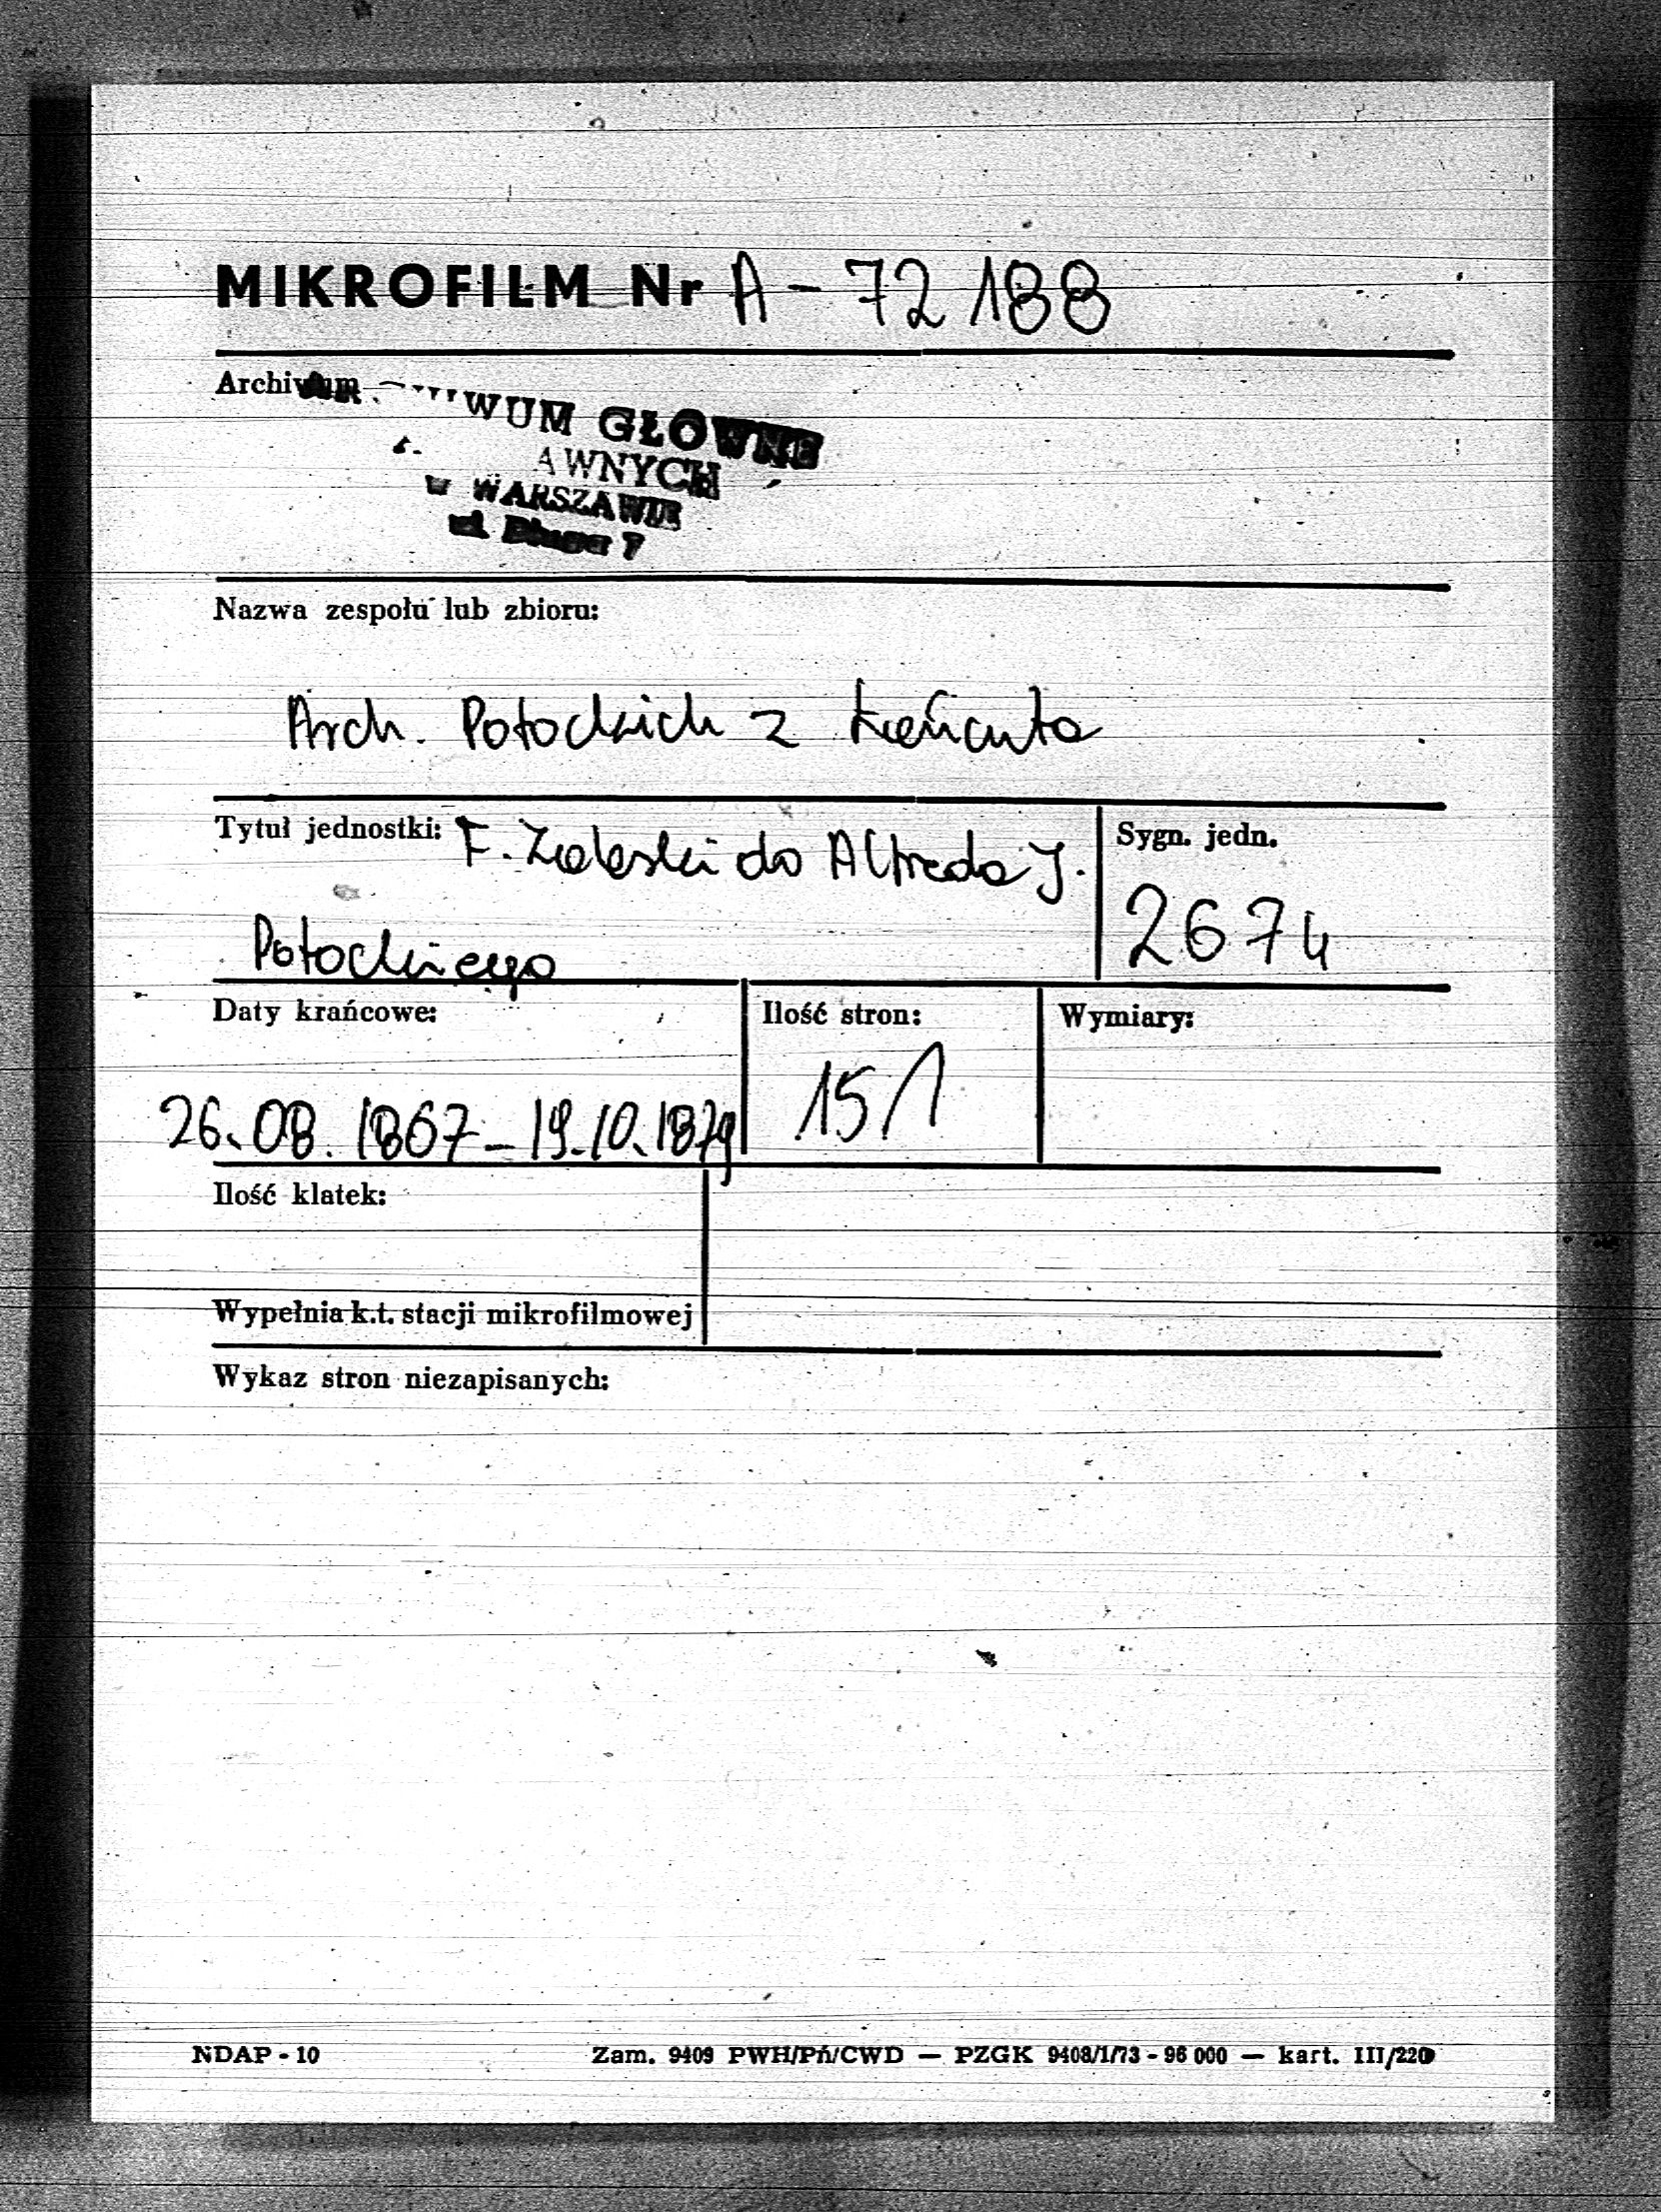 MIKROFILM Nr A - 72188
Archiwum
WUM GŁÓWNE
AWNYCH
w WARSZAWIE
ul. Długa 7
Nazwa zespołu lub zbioru:
Arch. Potockich z Łańcuta
Tytuł jednostki: F. Zaleski do Alfreda J.
Potockiego
Sygn. jedn.
2674
Daty krańcowe:
26.08.1867 - 19.10.1879
Ilość stron:
151
Wymiary:
Ilość klatek:
Wypełnia k.t. stacji mikrofilmowej
Wykaz stron niezapisanych:
NDAP - 10
Zam. 9409 PWH/Pń/CWD — PZGK 9408/1/73 - 96 000 — kart. III/220